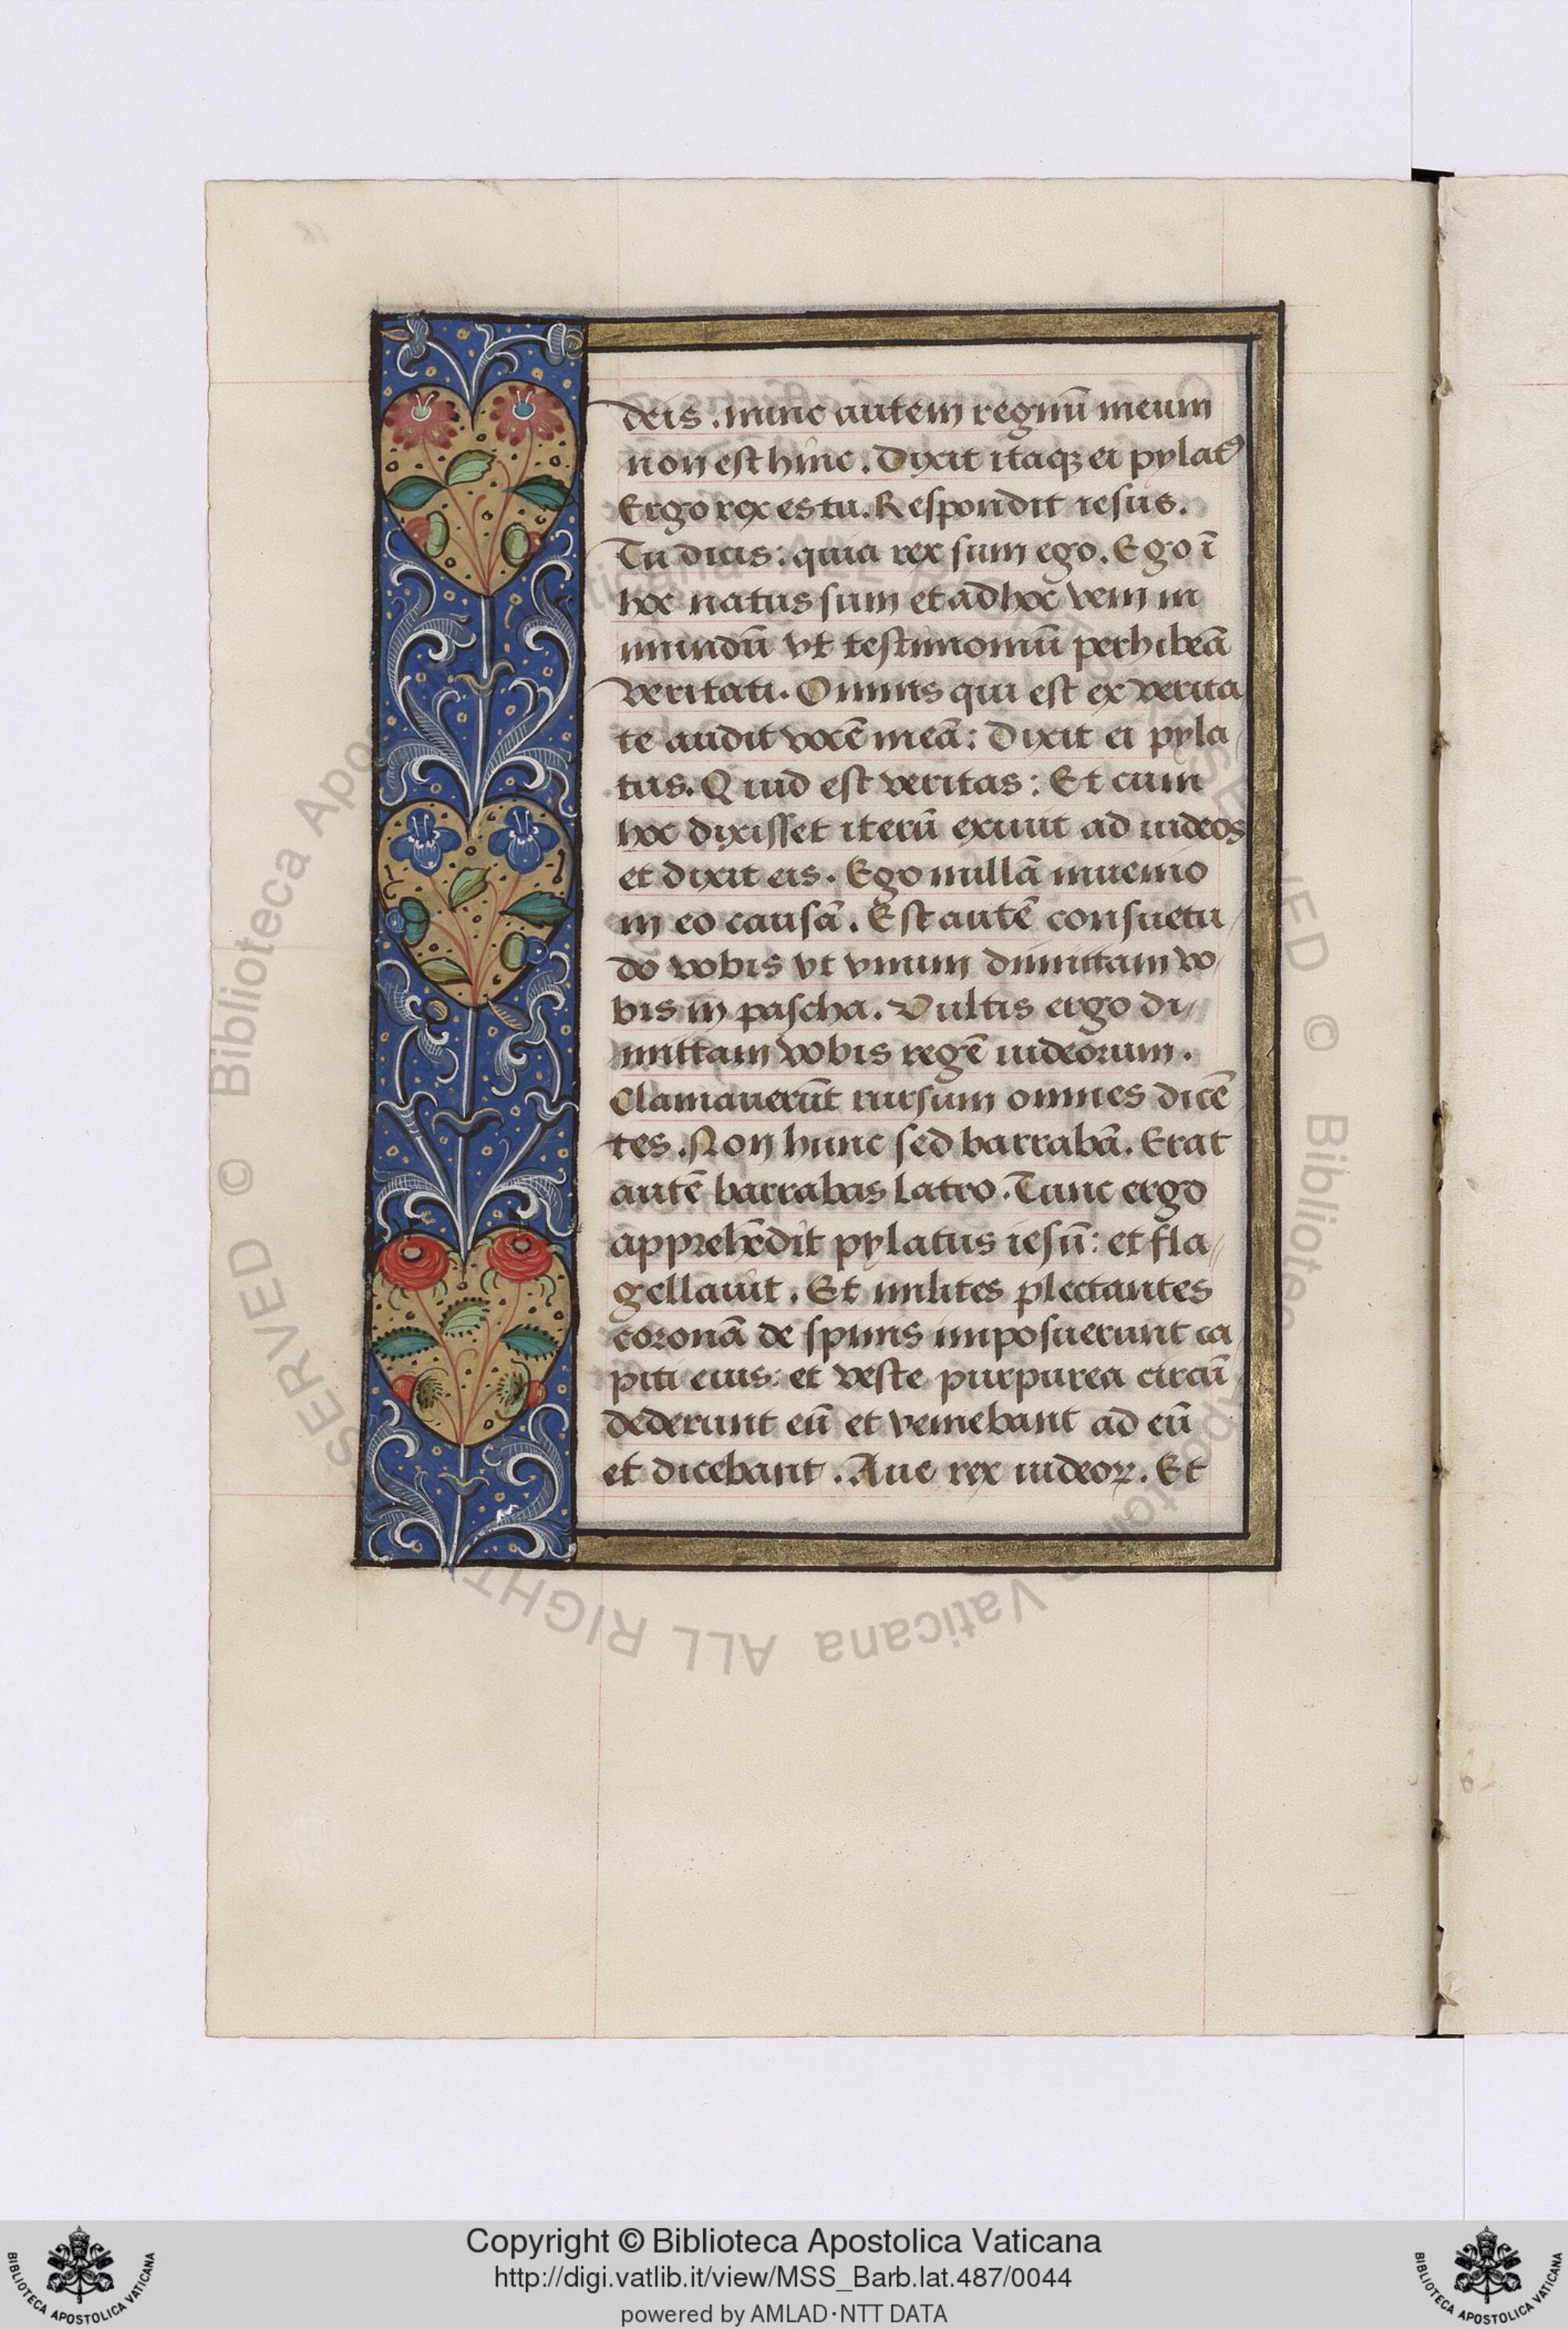 deis . nunc autem regnū meum
non est hinc . Dixit itaqꝫ ei pylatꝰ
Ergo rex es tu . Respondit iesus .
Tu dicis : quia rex sum ego . Ego ī
hoc natus sum et ad hoc veni in
mundū vt testimoniū perhibeā
veritati . Omnis qui est ex verita
te audit vocē meā : Dixit ei pyla
tus . Quid est veritas : Et cum
hoc dixisset iterū exiuit ad iudeos
et dixit eis . Ego nullā inuenio
in eo causā . Est autē consuetu
do vobis vt vnum dimittam vo
bis in pascha . Vultis ergo di
mittam vobis regē iudeorum .
Clamauerūt rursum omnes dicē
tes . Non hunc sed barrabā . Erat
autē barrabas latro . Tunc ergo
apprehēdit pylatus iesū : et fla
gellauit . Et milites plectantes
coronā de spinis imposuerunt ca
piti eius : et veste purpurea circū
dederunt eū et veniebant ad eū
et dicebant . Aue rex iudeoꝝ . Et
© Biblioteca Apostolica Vaticana ALL RIGHTS RESERVED
Copyright © Biblioteca Apostolica Vaticana
http://digi.vatlib.it/view/MSS_Barb.lat.487/0044
powered by AMLAD·NTT DATA
BIBLIOTECA APOSTOLICA VATICANA
BIBLIOTECA APOSTOLICA VATICANA